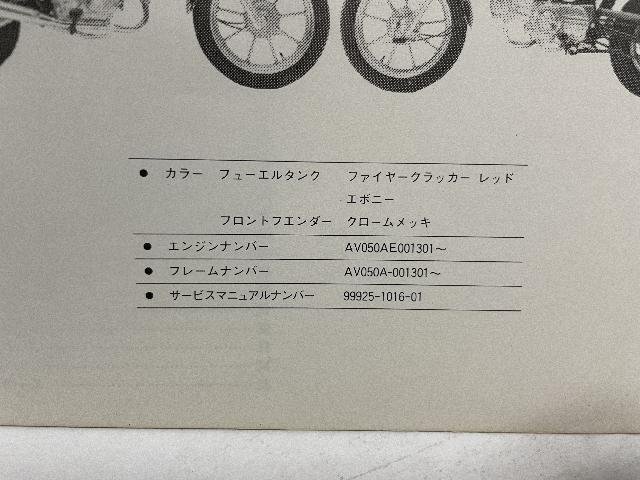 ● カラー フューエルタンク ファイヤークラッカー レッド
エボニー
フロントフエンダー クロームメッキ
● エンジンナンバー AV050AE001301～
● フレームナンバー AV050A-001301～
● サービスマニュアルナンバー 99925-1016-01